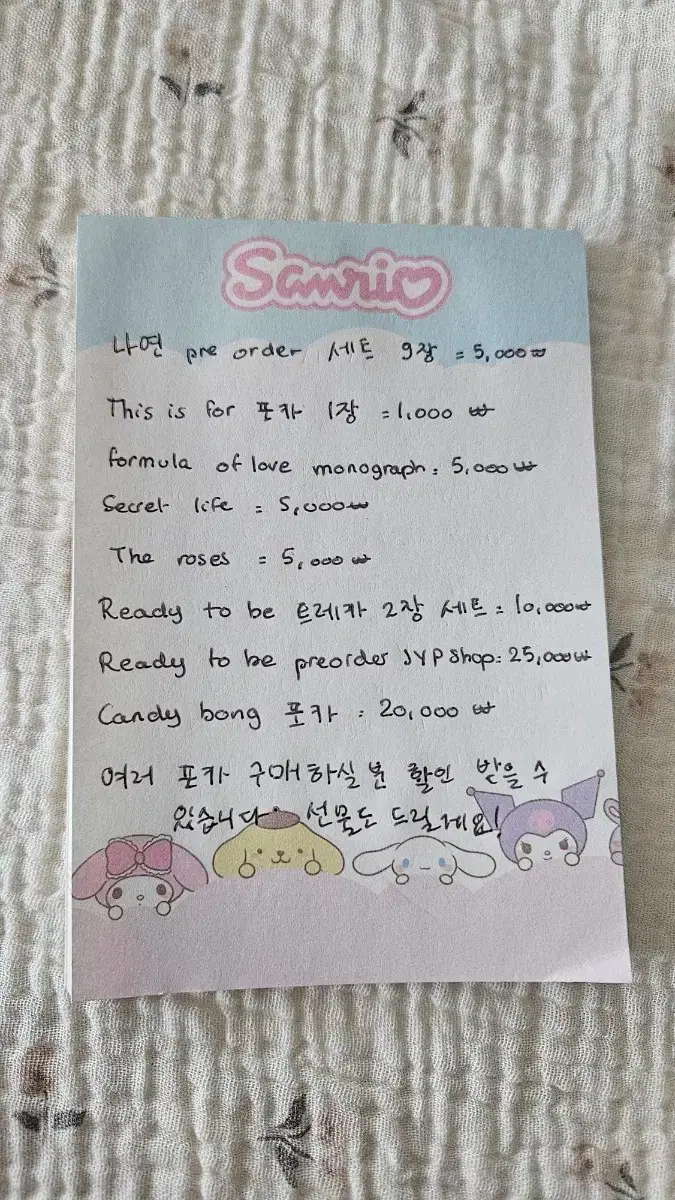 Sanrio
나연 pre order 세트 9장 = 5,000₩
This is for 포카 1장 = 1,000 ₩
formula of love monograph: 5,000₩
Secret life = 5,000₩
The roses = 5,000 ₩
Ready to be 트레카 2장 세트 = 10,000₩
Ready to be preorder JYP Shop: 25,000₩
Candy bong 포카 : 20,000 ₩
여러 포카 구매하실 분 할인 받을 수
있습니다. 선물도 드릴게요!